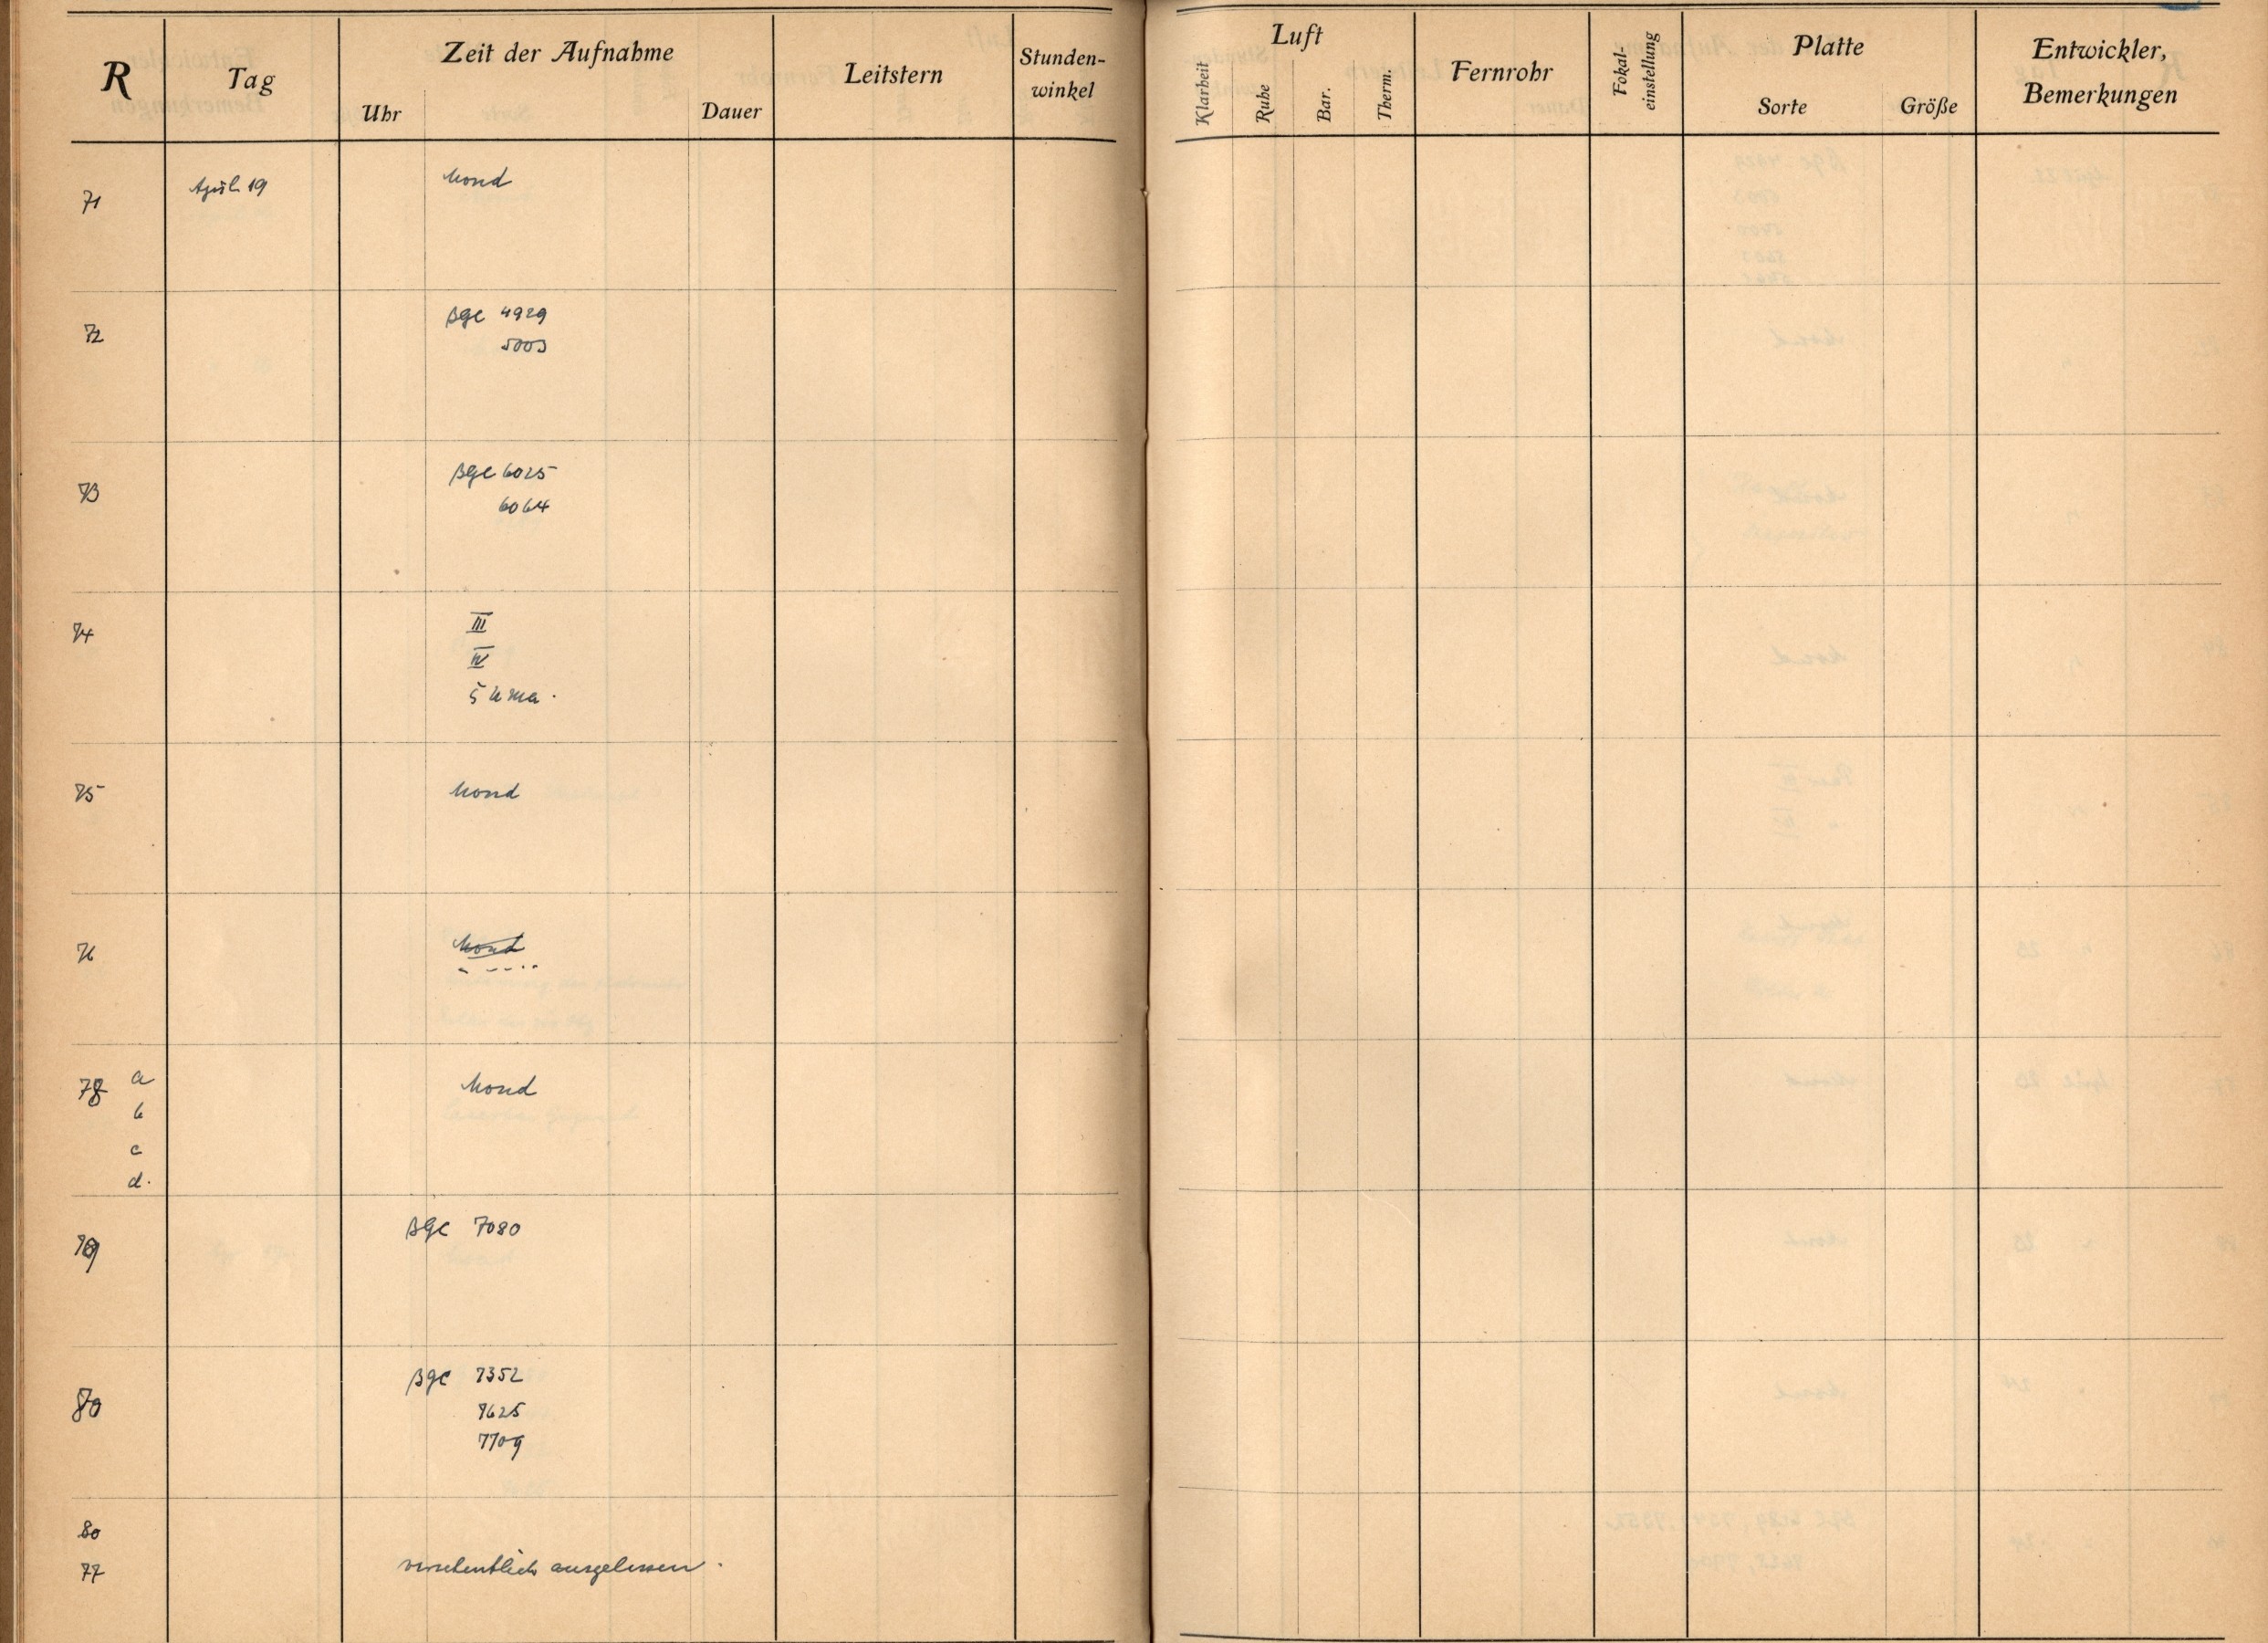 R Tag Zeit der Aufnahme Leitstern Stunden-
winkel
Uhr Dauer
Luft Fernrohr Fokal-
einstellung Platte Entwickler,
Bemerkungen
Klarheit Ruhe Bar. Therm. Sorte Größe
71 April 19 Mond
72 BGC 4929
5003
73 BGC 6025
6064
74 III
IV
5
75 Mond
76 Mond
78 a Mond
b
c
d.
79 BGC 7080
80 BGC 7352
7625
7709
80
77 versehentlich ausgelassen.